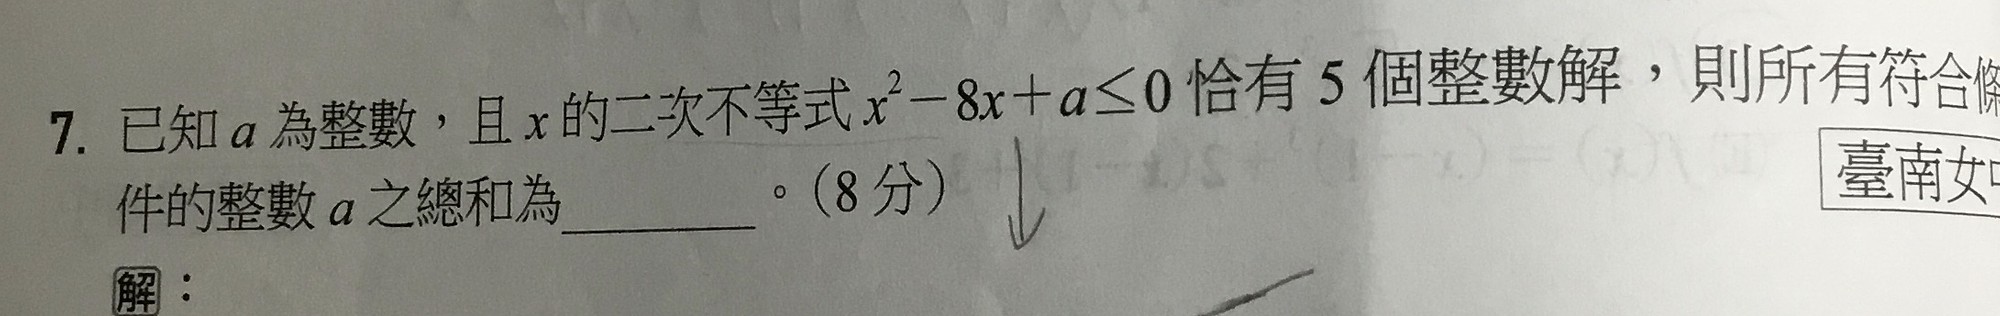 7. 已知 a 為整數，且 x 的二次不等式 x²－8x＋a≤0 恰有 5 個整數解，則所有符合條
件的整數 a 之總和為________。(8 分)
臺南女中
解：